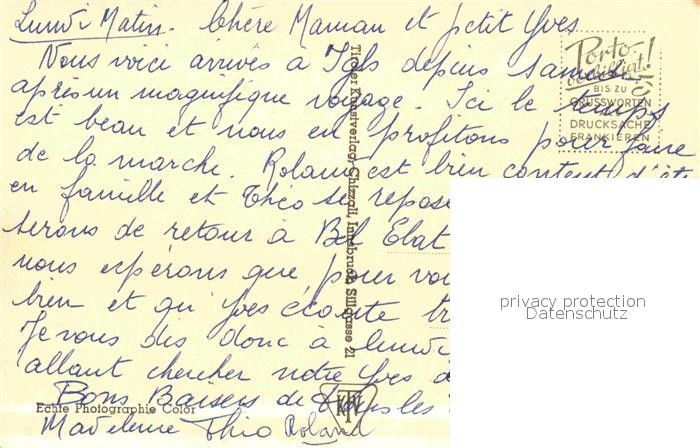 Lundi Matin. Chère Maman et petit Yves
Nous voici arrivés à Igls depuis samedi
après un magnifique voyage. Ici le temps
est beau et nous en profitons pour faire
de la marche. Roland est bien content d'êt
en famille et Théo se repose
serons de retour à Bel Ebat
nous espérons que pour vou
bien et qu'Yves écoute tr
Je vous dis donc à lundi
allant chercher notre Yves
Bons Baisers de tous les
Madeleine Théo Roland
Porto
verbilligt!
BIS ZU
GRUSSWORTEN
DRUCKSACHE
FRANKIEREN
Tiroler Kunstverlag Chizzali, Innsbruck, Sillgasse 21
Echte Photographie Color
KTW
privacy protection
Datenschutz